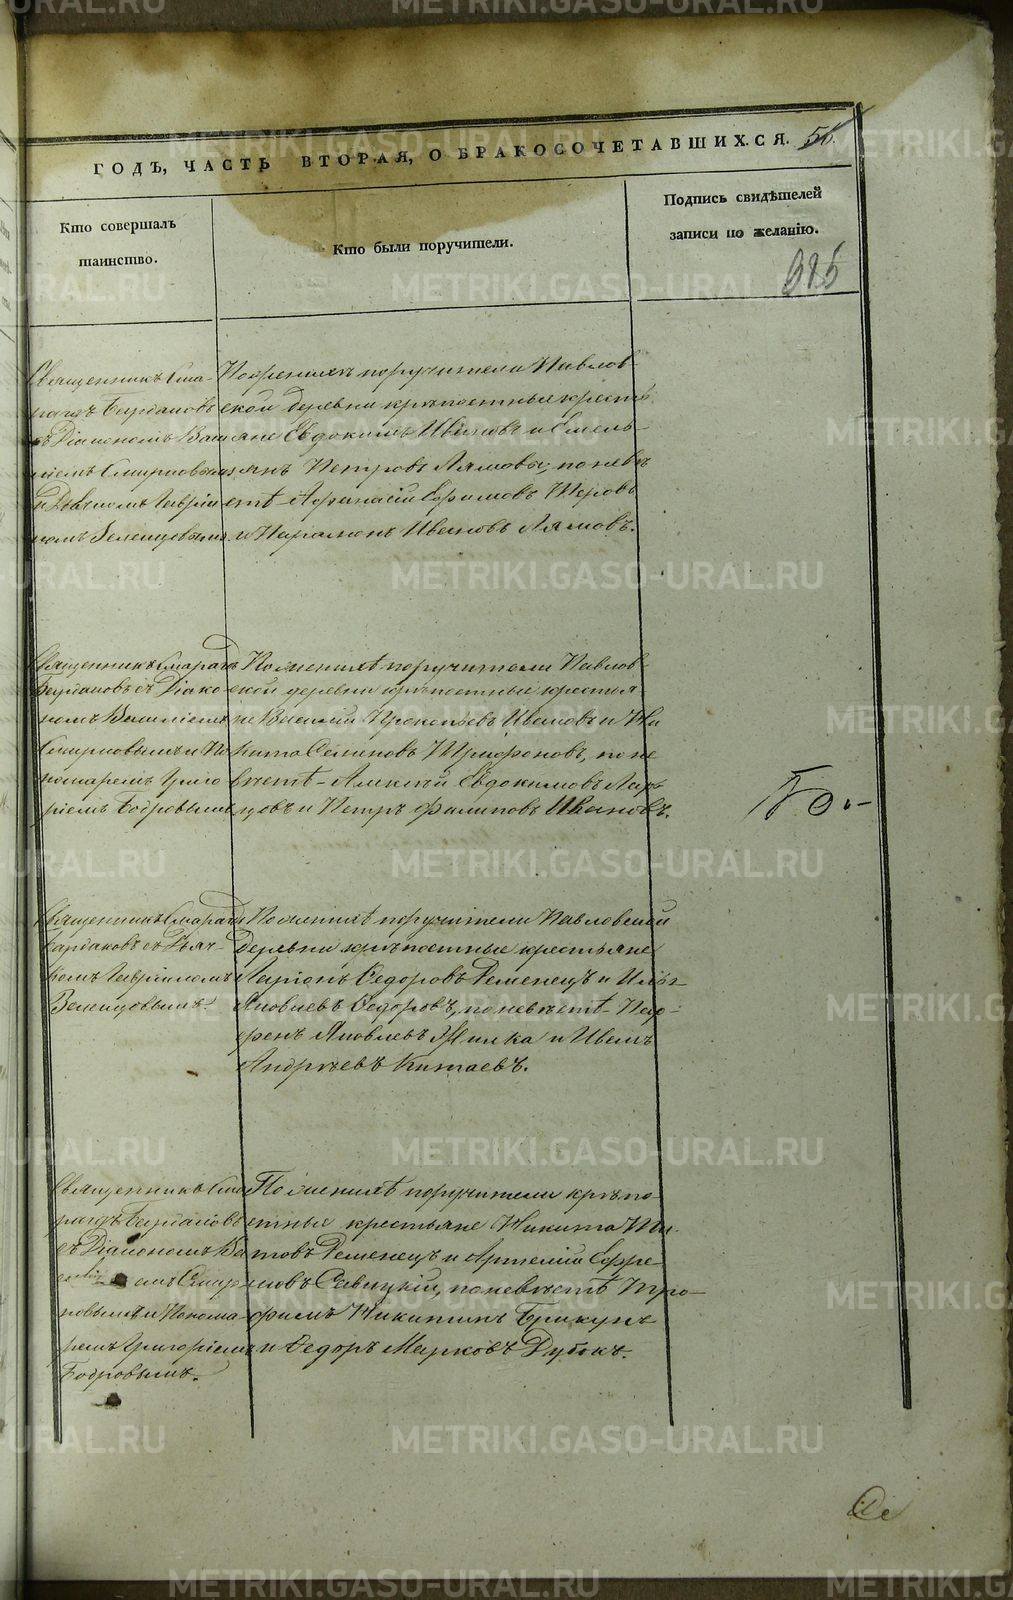 ГОДЪ, ЧАСТЬ ВТОРАЯ, О БРАКОСОЧЕТАВШИХСЯ. 56.
Кто совершалъ
таинство.
Кто были поручители.
Подпись свидѣтелей
записи по желанію.
Священникъ Сма-
рагдъ Бардаковъ
съ Діакономъ Васи
ліемъ Смирновымъ
и Дьячкомъ Гавріи
ломъ Зеленцовымъ
По женихѣ поручители Павлов-
ской деревни крѣпостные кресть
яне Евдокимъ Ивановъ и Емель-
янъ Петровъ Лямовы; по невѣ
стѣ Афанасій Ефимовъ
и Парамонъ Ивановъ Лямовъ.
Священникъ Смарагдъ
Бардаковъ съ Діако
номъ Василіемъ
Смирновымъ и По
номаремъ Григо
ріемъ Бобровымъ
По женихѣ поручители Павлов-
ской деревни крѣпостные крестья
не Василій Прокопьевъ Ивановъ и Ни
кита Семеновъ Трифоновъ, по не
вѣстѣ Алексѣй Евдокимовъ
и Петръ Филиповъ Ивановъ.
Священникъ Смарагдъ
Бардаковъ съ Дьяч-
комъ Гавріиломъ
Зеленцовымъ.
По женихѣ поручители Павловской
деревни крѣпостные крестьяне
Ларіонъ Ѳедоровъ Ременецъ и Илья
Яковлевъ Ѳедоровъ, по невѣстѣ Пар-
фенъ Яковлевъ Жилка и Иванъ
Андреевъ Китаевъ.
Священникъ Сма
рагдъ Бардаковъ
съ Діакономъ Ва
силіемъ Смир
новымъ и Понома-
ремъ Григоріемъ
Бобровымъ.
По женихѣ поручители крѣпо-
стные крестьяне Никита
Ременецъ и Артемій Ефре
мовъ Савицкій, по невѣстѣ Тро-
фимъ Никитинъ Брикунъ
и Ѳедоръ Марковъ Дубокъ.
METRIKI.GASO-URAL.RU